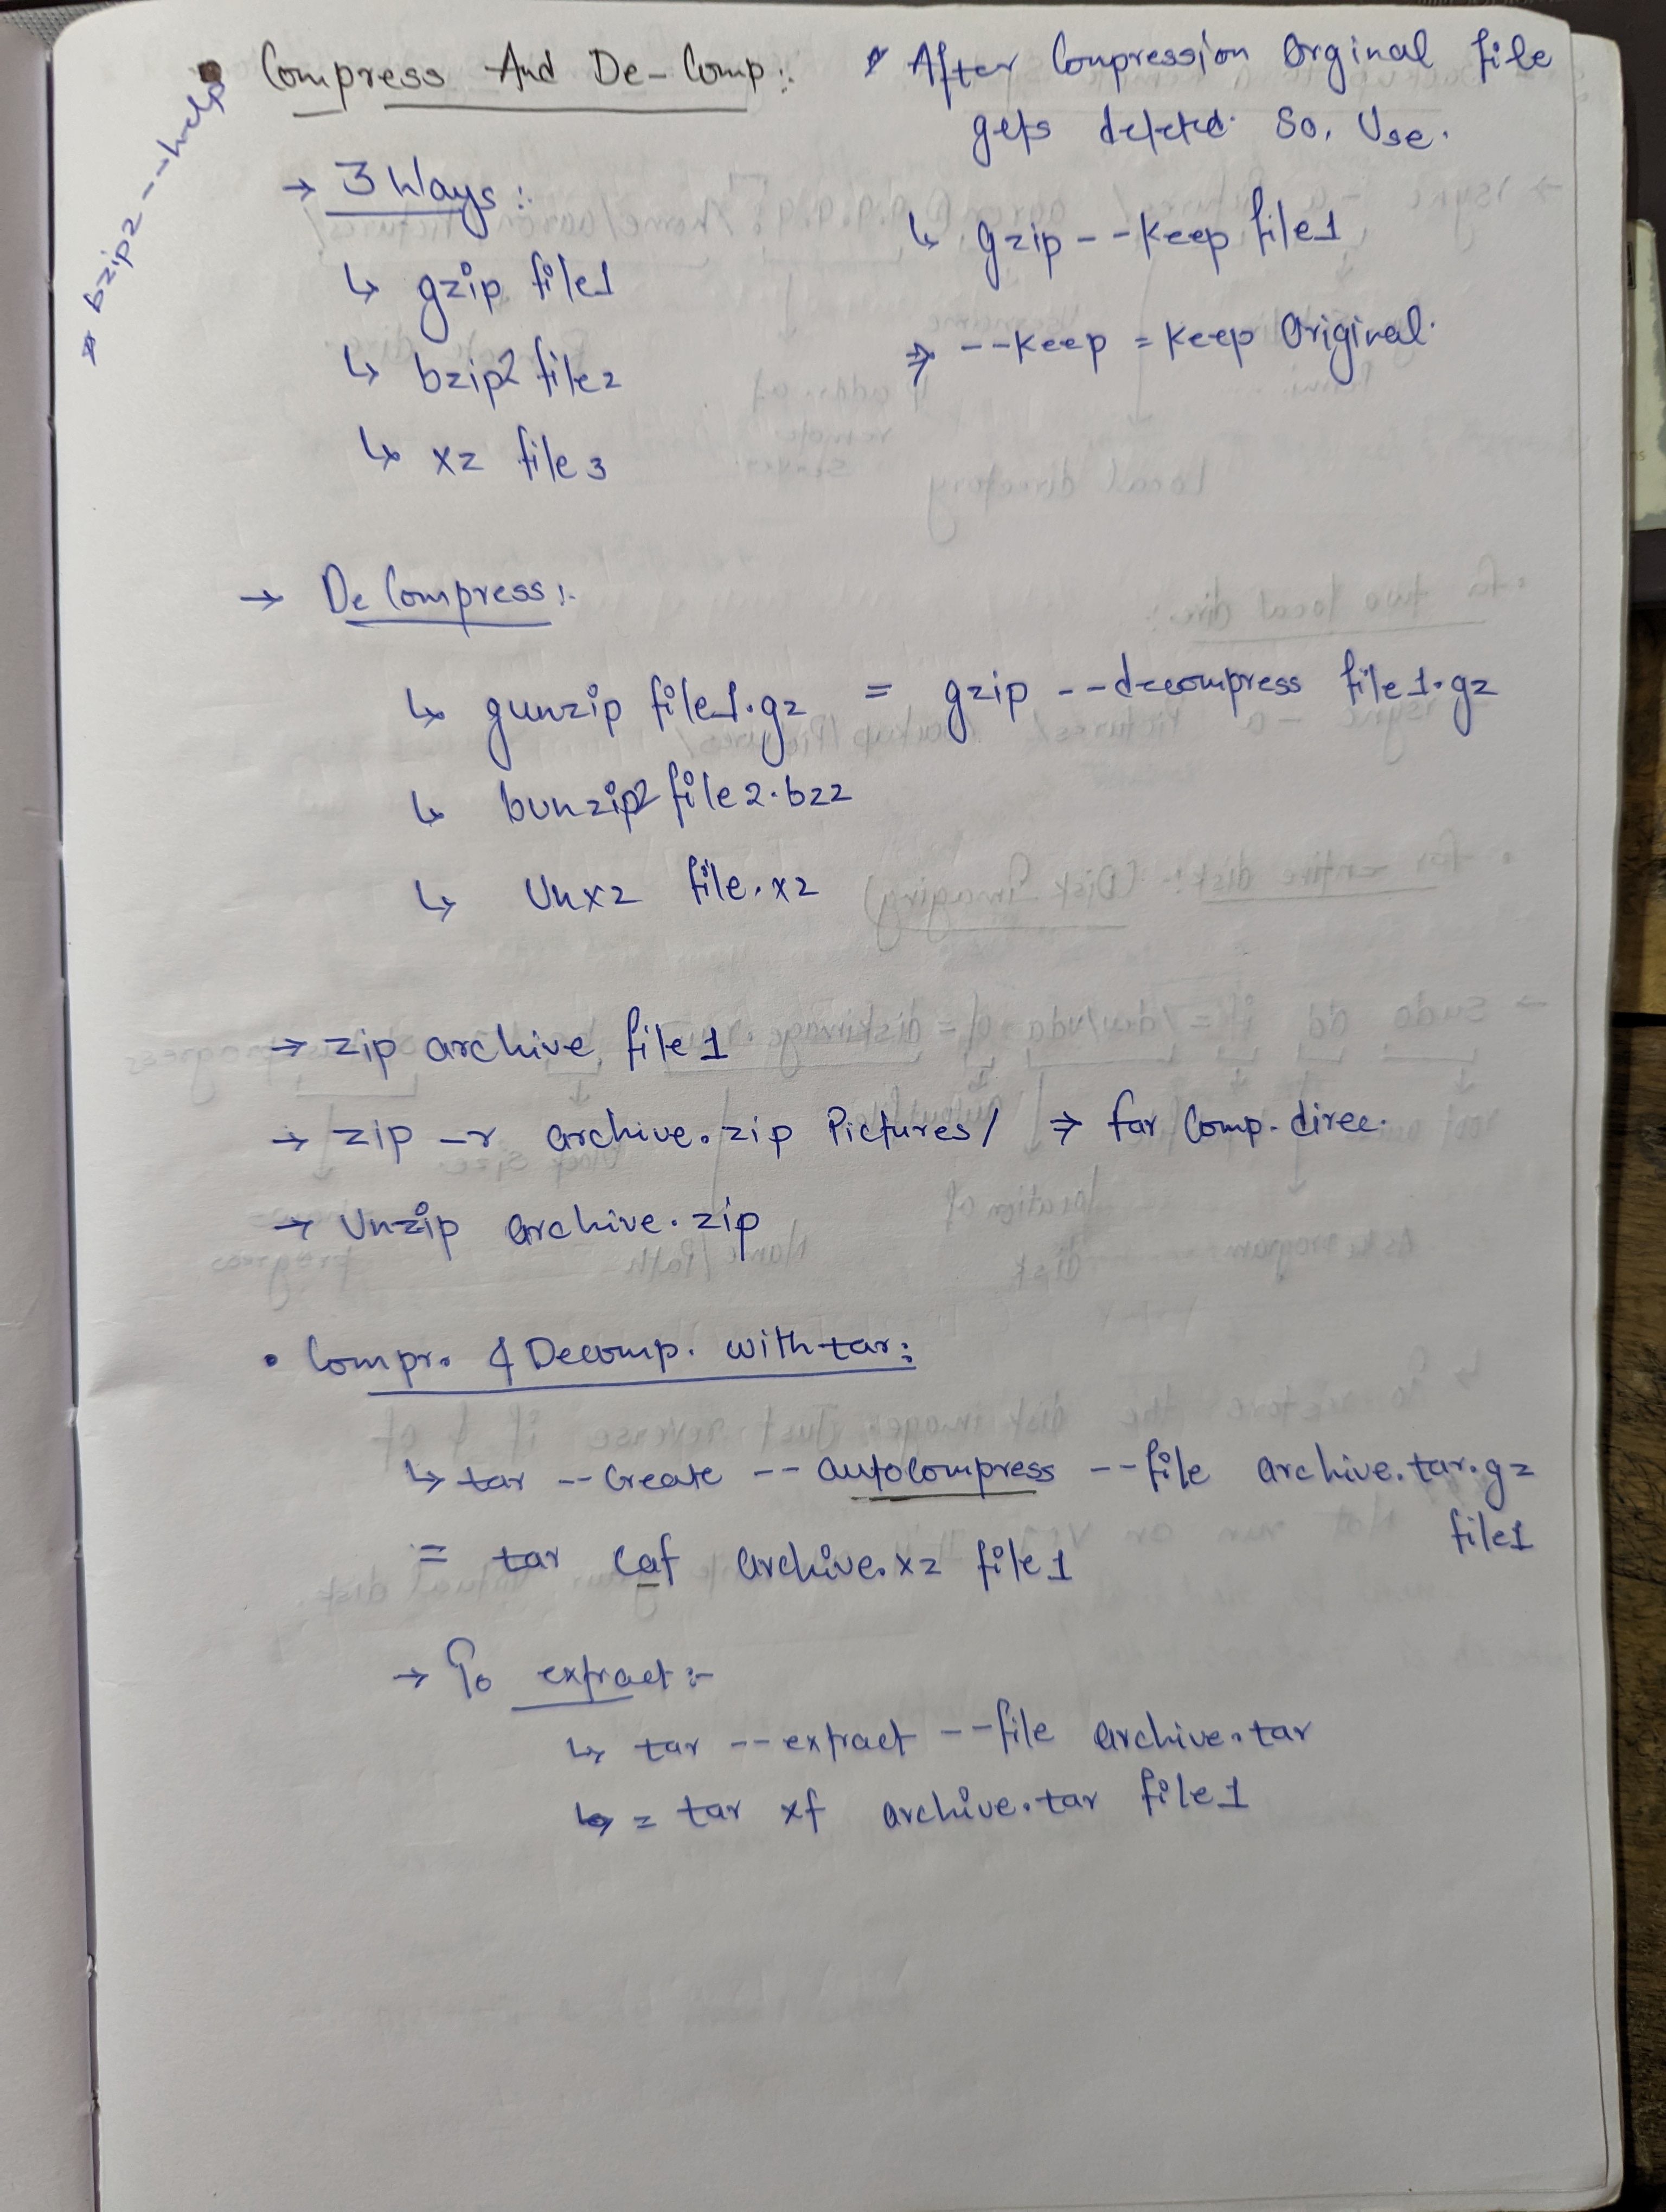 • Compress And De-Comp:-
* bzip2 --help
* After Compression Orginal file
gets deleted. So, Use.
→ 3 Ways:-
↳ gzip file1
↳ bzip2 file2
↳ xz file3
↳ gzip --keep file1
⇒ --keep = keep Original.
→ DeCompress:-
↳ gunzip file1.gz = gzip --decompress file1.gz
↳ bunzip2 file2.bz2
↳ Unxz file.xz
→ zip archive file1
→ zip -r archive.zip Pictures/ ⇒ for Comp. direc.
→ Unzip archive.zip
• Compr. & Decomp. with tar:
↳ tar --Create --autoCompress --file archive.tar.gz
file1
= tar caf archive.xz file1
→ To extract:-
↳ tar --extract --file archive.tar
↳ = tar xf archive.tar file1